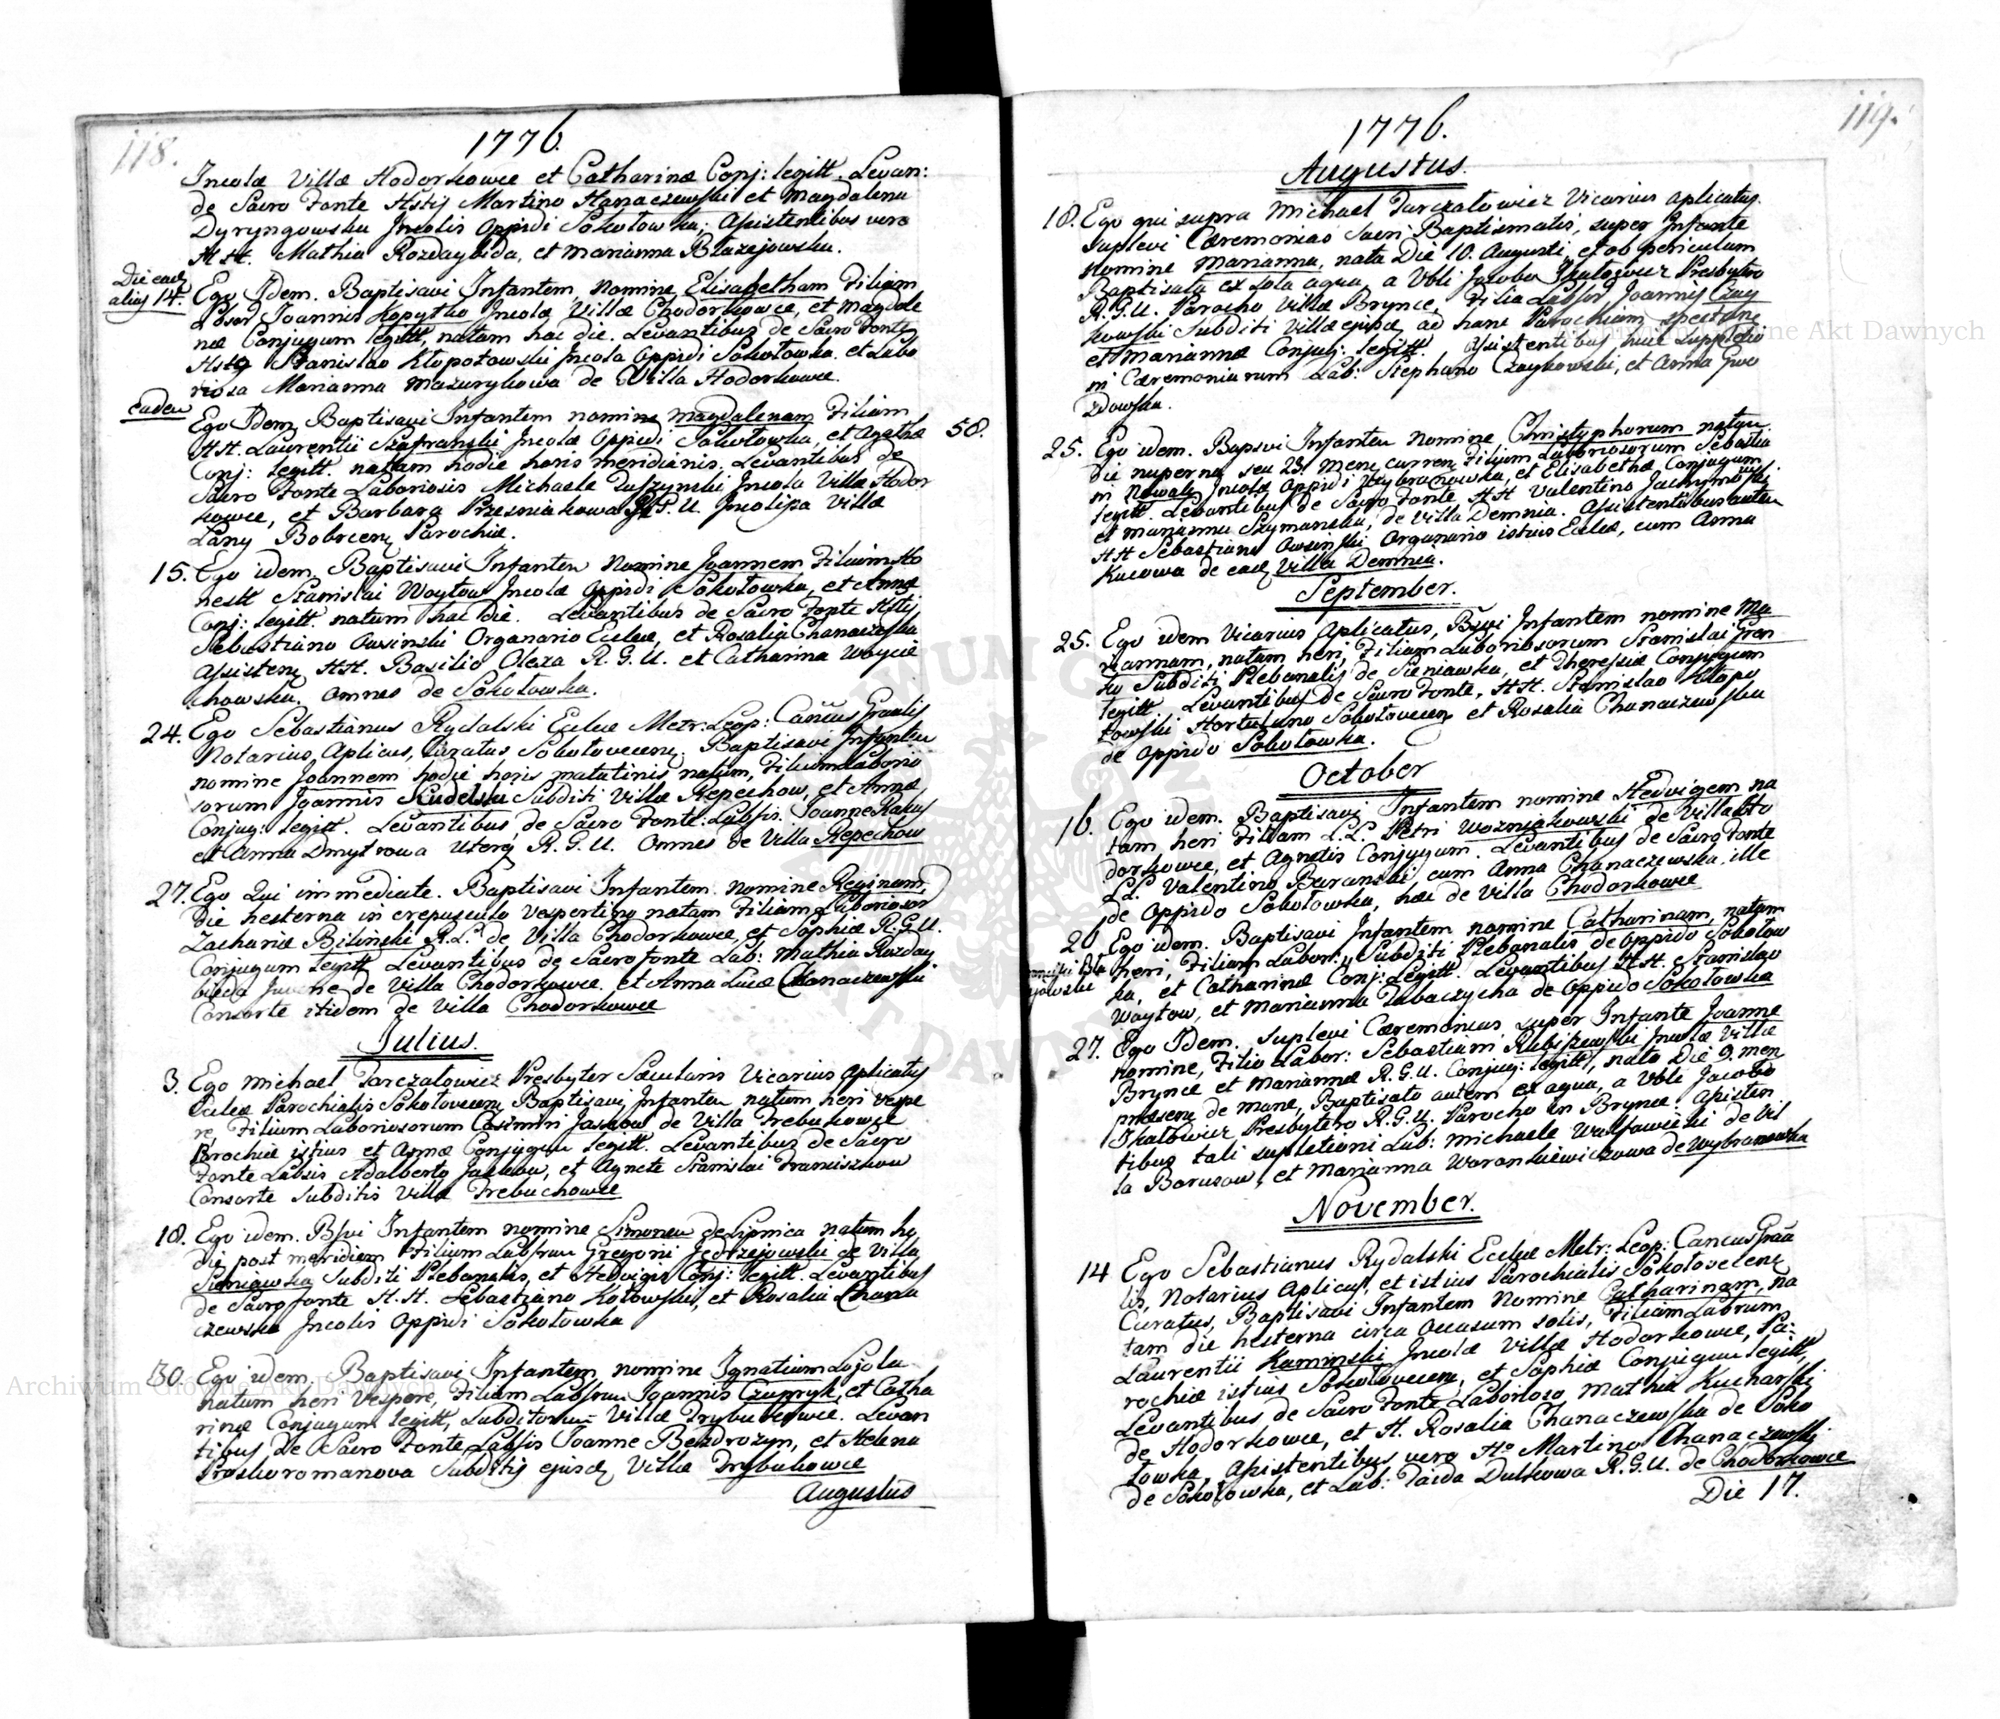 118.
1776.
Incolæ Villæ Hodorkowce et Catharinæ Conj: legitt. Levan:
de Sacro Fonte Hstis Martino Hanaczewski et Magdalena
Dyryngowska Incolis Oppidi Sokołowka. Assistentibus vero
HH. Mathia Rozdaybida, et Marianna Błażejowska.
Die ead
alias 14.
Ego Idem. Baptisavi Infantem, nomine Elisabetham Filiam
Joannis Kopytko Incolæ Villæ Chodorkowce, et Magdale
næ Conjugum legitt, natam hac die. Levantibus de Sacro Fonte
Stanislao Kłopotowski Incola Oppidi Sokołowka. et Labo
riosa Marianna Mazurykowa de Villa Hodorkowce.
eadem
Ego Idem, Baptisavi Infantem nomine Magdalenam Filiam
HH. Laurentii Szafranski Incolæ Oppidi Sokołowka, et Agathæ
58.
Conj: legitt. natam hodie horis meridianis. Levantibus de
Sacro Fonte Laboriosis Michaele Duszynski Incola Villæ Hodor
kowce, et Barbara Przesniakowa R.G.U. Incolissa Villæ
Łany Bobrcen Parochiæ.
15. Ego idem, Baptisavi Infantem Nomine Joannem Filium Ho
nestt Stanislai Woytow Incolæ Oppidi Sokołowka, et Annæ
Conj: legitt. natum hac Die. Levantibus de Sacro Fonte Hstis
Sebastiano Owsinski Organario Ecclæ, et Rosalia Chanaczewska
Assisten HH. Basilio Olexa R.G.U. et Catharina Woycie
chowska. Omnes de Sokołowka.
24. Ego Sebastianus Rydalski Ecclæ Metr: Leop: Cancus Gnalis
Notarius Aplicus, Curatus Sokołovecen, Baptisavi Infantem
nomine Joannem hodie horis matutinis natum, Filium Laborio
sorum Joannis Kudelski Subditi Villæ Repechow, et Annæ
Conjug: legitt. Levantibus de Sacro Fonte: Labsis. Joanne
et Anna Dmytrowa Uterq R.G.U. Omnes de Villa Repechow
27. Ego Qui immediate. Baptisavi Infantem nomine Reginam,
Die hesterna in crepusculo Vespertino natam Filiam Laborioser
Zachariæ Biliński R.L. de Villa Chodorkowce, et Sophiæ R.G.U.
Conjugum legitt Levantibus de Sacro fonte Lab: Mathia Rozday
bieda Juvene de Villa Chodorkowce, et Anna Lucæ Chanaczewski
Consorte itidem de Villa Chodorkowce
Julius.
3. Ego Michael Tarczałowicz Presbyter Sæcularis Vicarius Aplicatus
Ecclæ Parochialis Sokołovecen, Baptisavi Infantem natum heri vespe
re, Filium Laboriosorum Casimiri Jaskow de Villa Trebuhowce
Parochiæ istius et Annæ Conjugum legitt. Levantibus de Sacro
Fonte Labsis Adalberto Jaskow, et Agnete Stanislai Franciszkow
Consorte Subditis Villæ Trebuchowce
18. Ego idem. Bsvi Infantem nomine Simonem de Lipnica natum ho
die post meridiem Filium Labsrum Gregorii Jędrzejowski de Villa
Sieniawka Subditi Plebanalis, et Hedvigis Conj: legitt. Levantibus
de Sacro fonte H.H. Sebastiano Kotowski, et Rosalia Chana
czewska Incolis Oppidi Sokołowka
30. Ego idem. Baptisavi Infantem, nomine Ignatium Lojola
natum heri Vespere, Filium Labsrum Joannis Czupryk, et Catha
rinæ Conjugum legitt, Subditorum Villæ Trybuhowce. Levan
tibus de Sacro Fonte Labsis Joanne Bezdrozyn, et Helena
Proskoromanowa Subditis ejusd Villæ Trybuhowce
Augustus
119.
1776.
Augustus.
18. Ego qui supra Michael Tarczałowicz Vicarius Aplicatus.
suplevi Cæremonias Sacri Baptismatis, super Infante
Nomine Marianna, nata Die 10. Augusti, et ob periculum
Baptisata ex sola aqua, a Vbli Jacobo Skałowicz Presbytero
R.G.U. Parocho Villæ Brynce, Filia Labsor Joannis Czay
kowski Subditi Villæ ejusd, ad hanc Parochiam spectan
et Mariannæ Conjug: legitt. Assistentibus huic suppletio
ni Cæremoniarum Lab: Stephano Czaykowski, et Anna Gwo
zdowska.
25. Ego idem. Bapsvi Infantem Nomine Christophorum natum
Die nuperna seu 23. Mens curren Filium Laboriosorum Sebastia
ni Nowak Incolæ Oppidi Wybranowka, et Elisabethæ Conjugum
legitt. Levantibus de Sacro Fonte HH Valentino Jachymowski
et Marianna Szymanska, de Villa Demnia. Assistentibus autem
HH Sebastiano Owsinski Organario istius Ecclæ, cum Anna
Kucowa de ead Villa Demnia.
September.
25. Ego idem Vicarius Aplicatus, Bsvi Infantem nomine Ma
riannam, natam heri, Filiam Laboriosorum Stanislai Hran
ko Subditi Plebanalis de Sieniawka, et Theressiæ Conjugum
legitt. Levantibus De Sacro Fonte, HH. Stanislao Kłopo
towski Hortulano Sokołovecen et Rosalia Chanaczewska
de Oppido Sokołowka.
October
16. Ego idem. Baptisavi Infantem nomine Hedvigem na
tam heri Filiam L.L. Petri Wozniakowski de Villa Ho
dorkowce, et Agnetis Conjugum. Levantibus de Sacro Fonte
L.L. Valentino Baranski cum Anna Chanaczewska, ille
de Oppido Sokołowka, hæc de Villa Chodorkowce
20 Ego idem. Baptisavi Infantem nomine Catharinam, natam
heri, Filiam Labor: Subditi Plebanalis de Oppido Sokołow
ka, et Catharinæ Conj: Legitt. Levantibus HH. Stanislao
Woytow, et Marianna Tabaczycha de Oppido Sokołowka
27. Ego Idem. suplevi Cæremonias super Infante Joanne
Nomine, Filio Labor: Sebastiani Rubiszewski Incolæ Villæ
Brynce et Mariannæ R.G.U. Conjug: legitt, nato Die 9. men
præsen de mane, Baptisato autem ex aqua, a Vbli Jacobo
Skałowicz Presbytero R.G.U. Parocho in Brynce. Assisten
tibus tali supletioni Lab: Michaele Walsawiecki de Vil
la Borusow, et Marianna Woronkiewiczowa de Wybranowka
November.
14 Ego Sebastianus Rydalski Ecclæ Metr: Leop: Cancus Gna
lis, Notarius Aplicus, et istius Parochialis Sokołovecen
Curatus, Baptisavi Infantem Nomine Catharinam, na
tam die hesterna circa Occasum solis, Filiam Labrum
Laurentii Kaminski Incolæ Villæ Hodorkowce, Pa:
rochiæ istius Sokołovecen, et Sophiæ Conjugum legitt,
Levantibus de Sacro Fonte Laborioso Mathia Kucharski
de Hodorkowce, et H. Rosalia Chanaczewska de Soko
łowka, Assistentibus vero Ho Martino Chanaczewski
de Sokołowka, et Lab: Taida Dutkowa R.G.U. de Chodorkowce
Die 17.
Archiwum Główne Akt Dawnych
Archiwum Główne Akt Dawnych